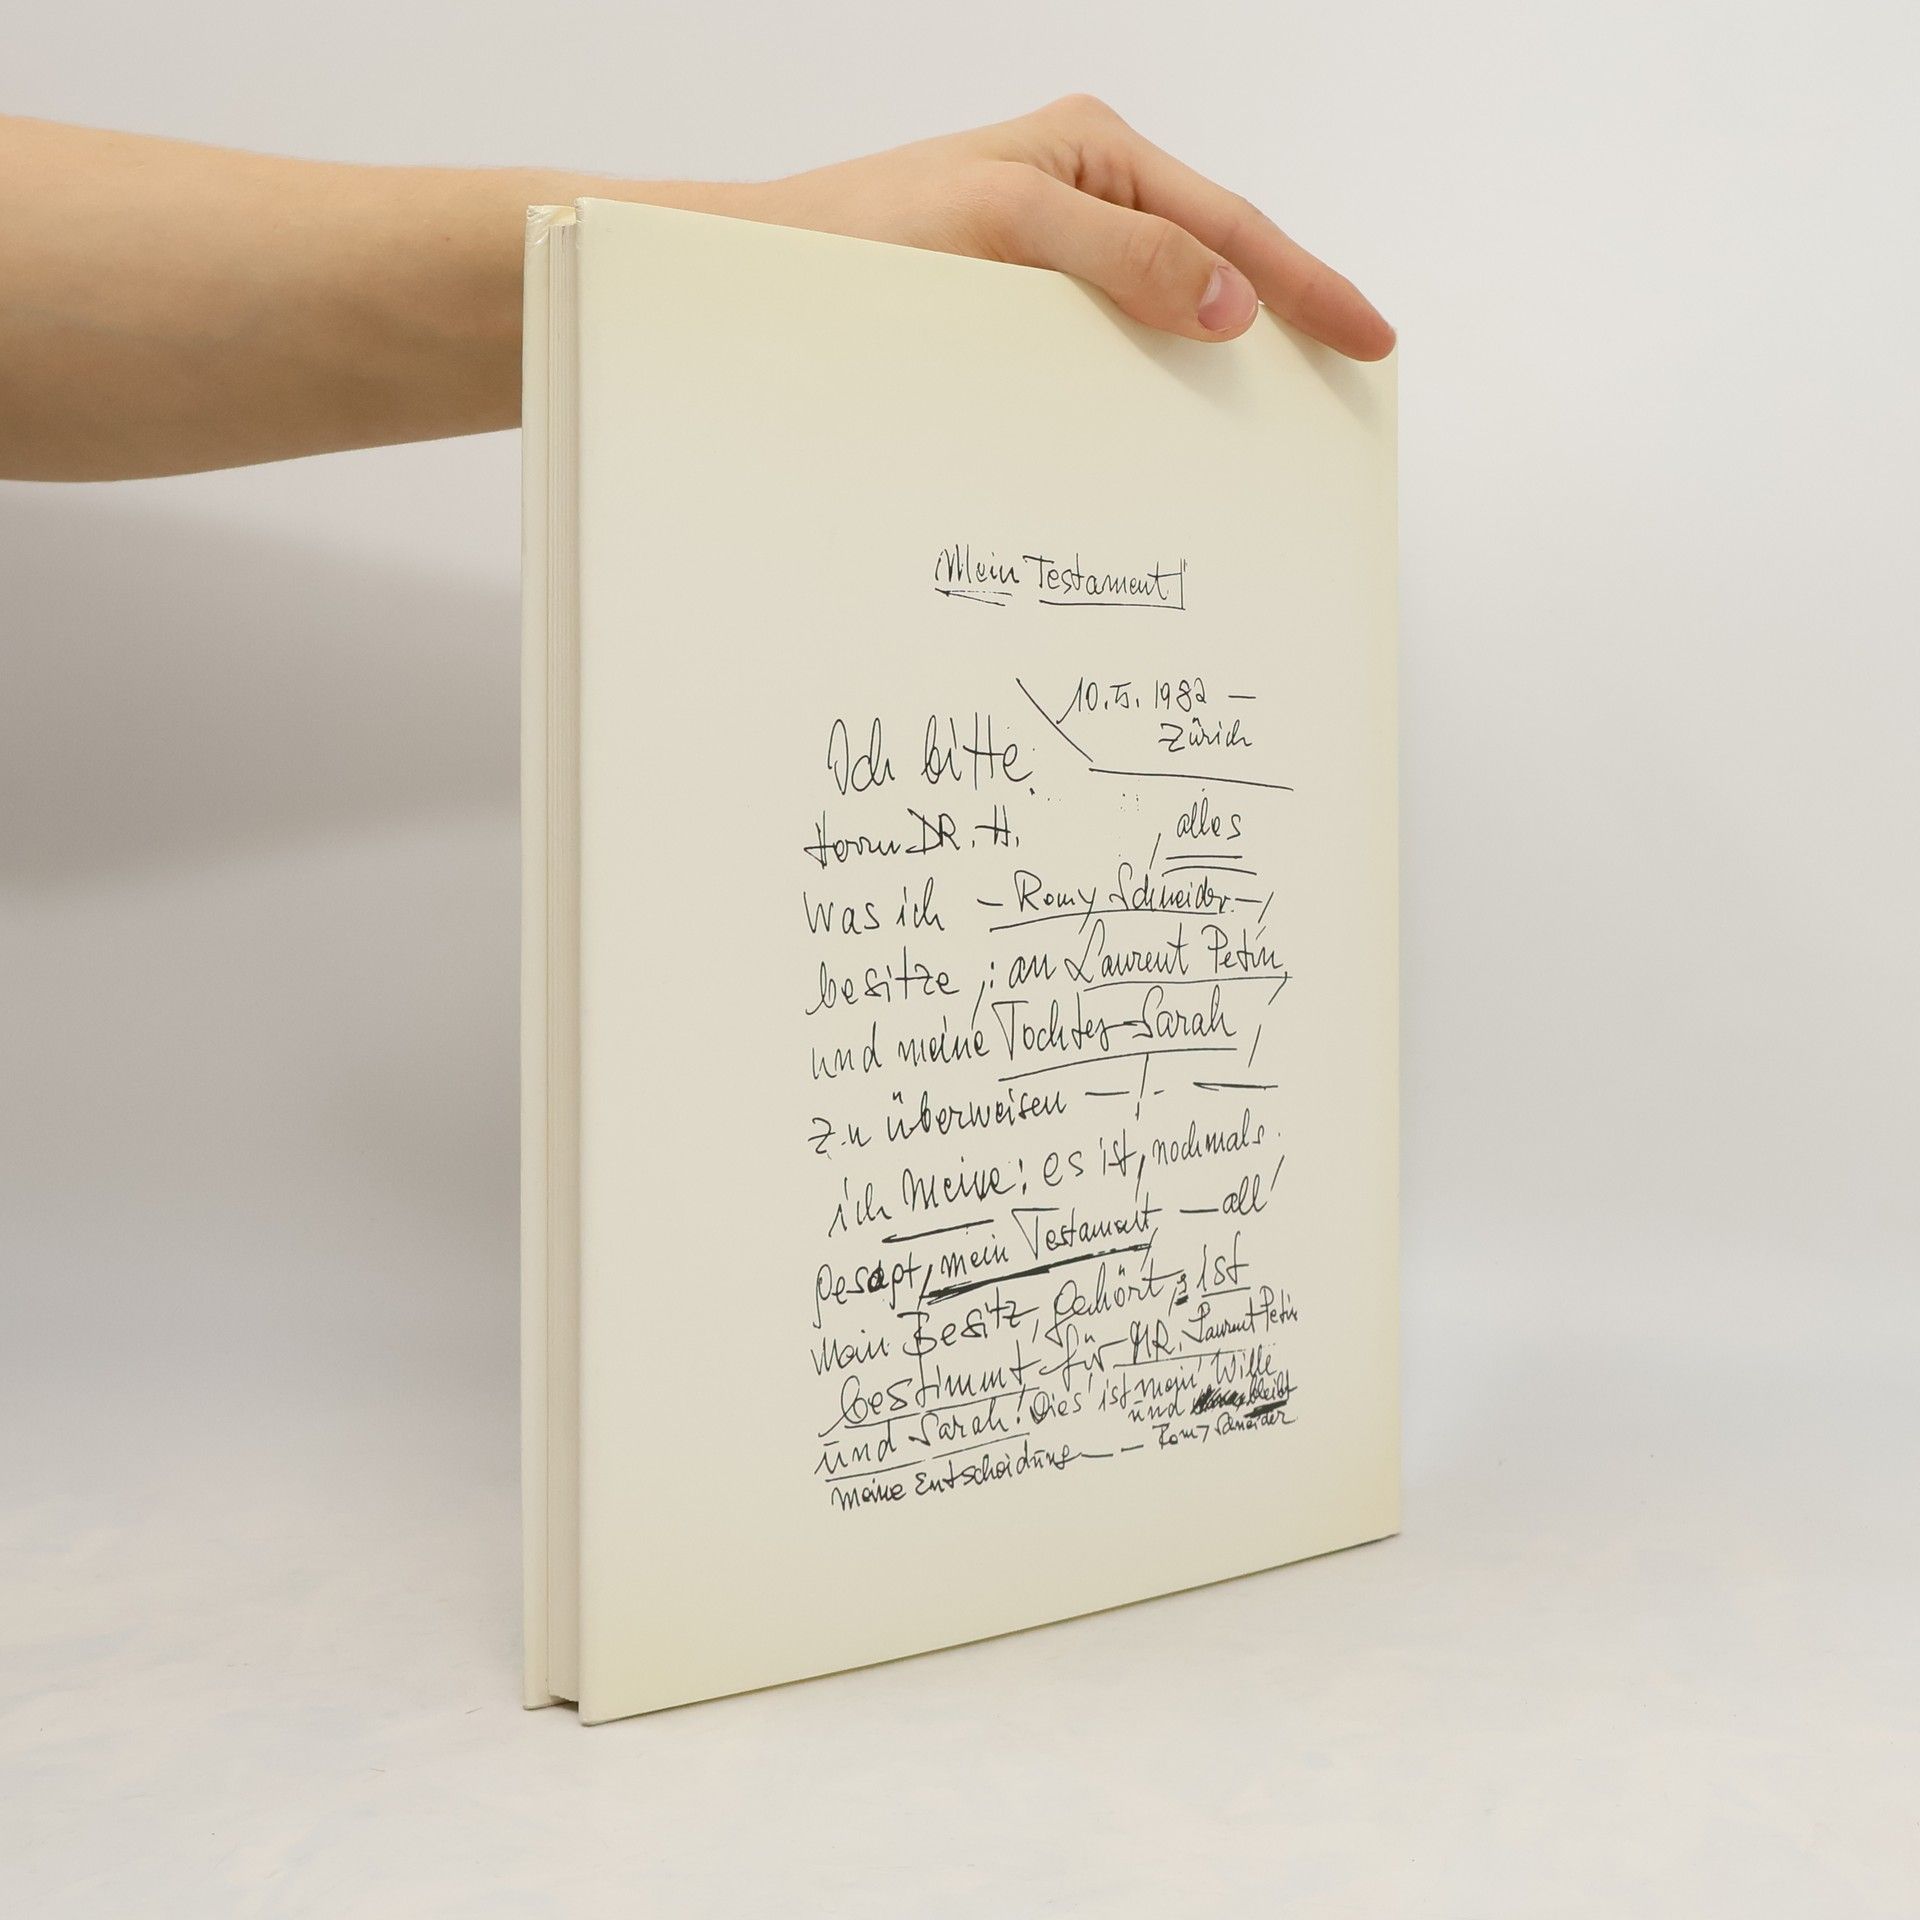 Mein Testament
10. 5. 1982 —
Zürich
Ich bitte
Herrn DR. H. , alles
was ich – Romy Schneider. – /
besitze , : an Laurent Petin,
und meine Tochter Sarah /
zu überweisen — ! - —
ich meine : es ist, nochmals.
gesagt, mein Testament, — all'
mein Besitz, gehört, ist
bestimmt für MR. Laurent Petin
und Sarah! Dies' ist mein' Wille
und bleibt
meine Entscheidung — – Romy Schneider.